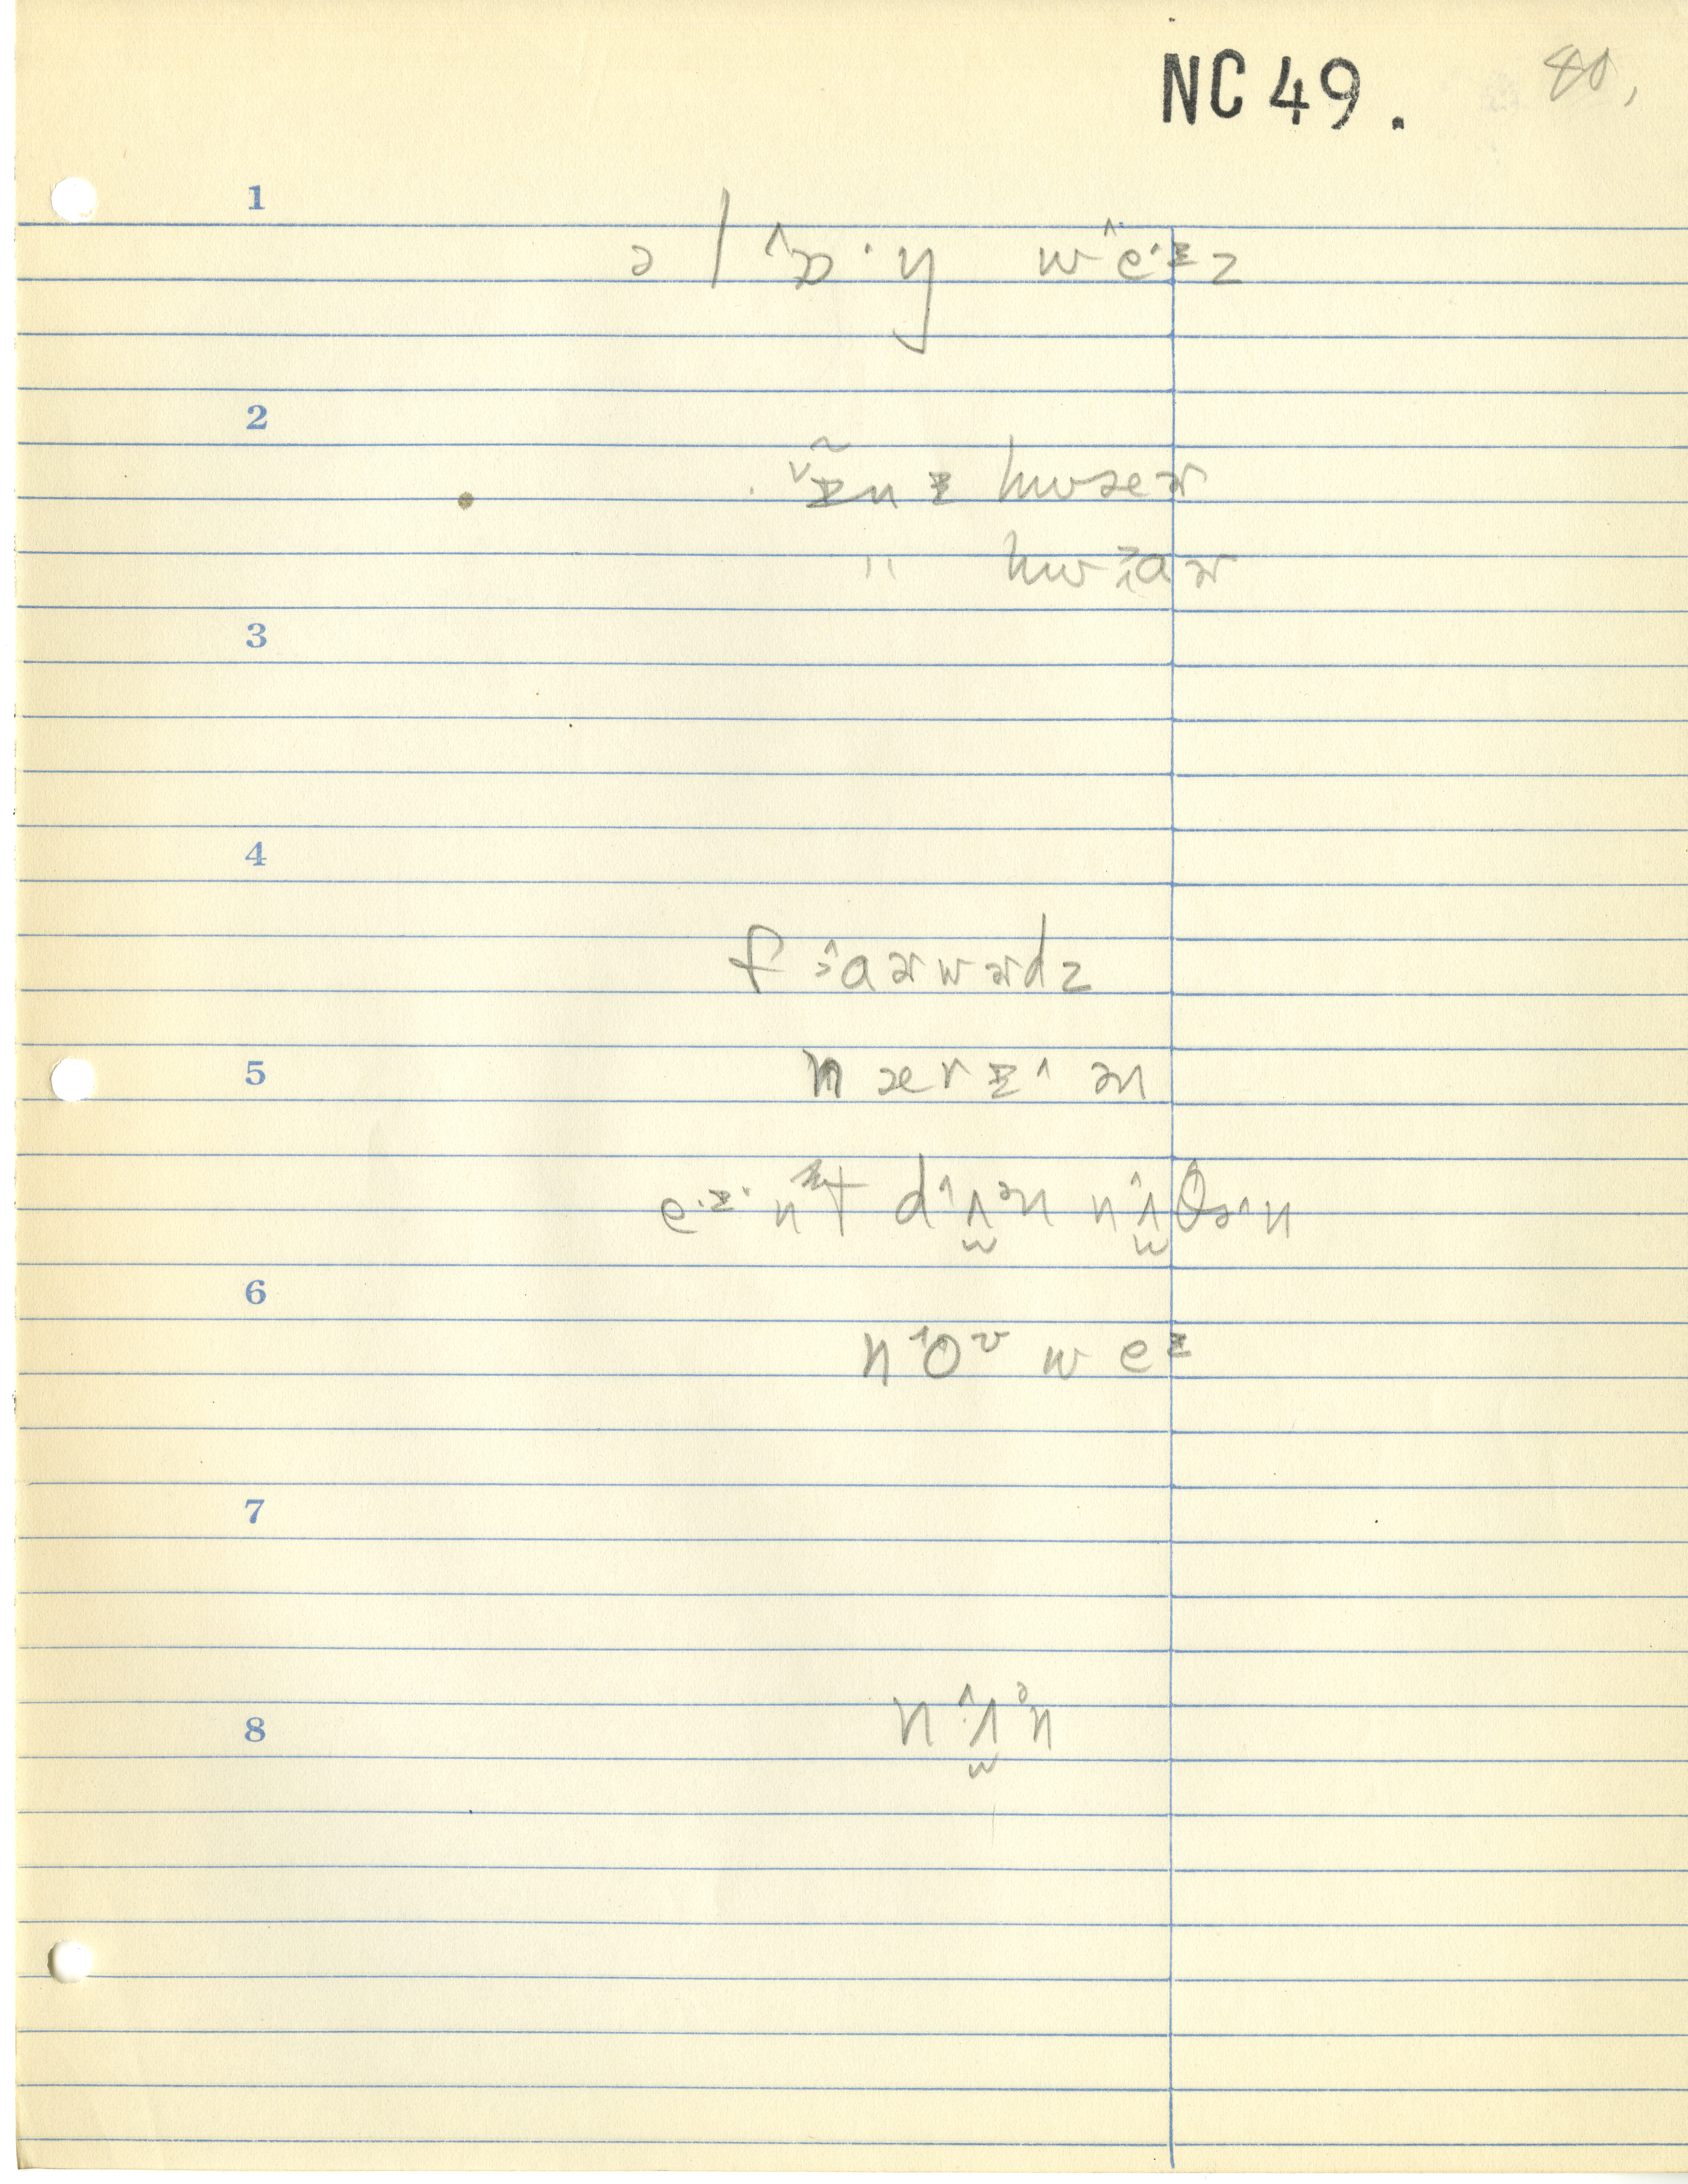 NC 49. 80,
1
ə l ɒ˄· y w e˄·ɪ z
2
ɪ̃˅n ɪ hwæɚ
" hwɔ˄aɚ
3
4
f ɔ˄a ɚ w ɚ d z
5
n æ r ɪ˄ ən
e·ɪ· n t d ʌ˄ ən n ʌ˄ θ ə˄ n
6
n o˄ʊ w e ɪ
7
n ʌ˄ ə n
8